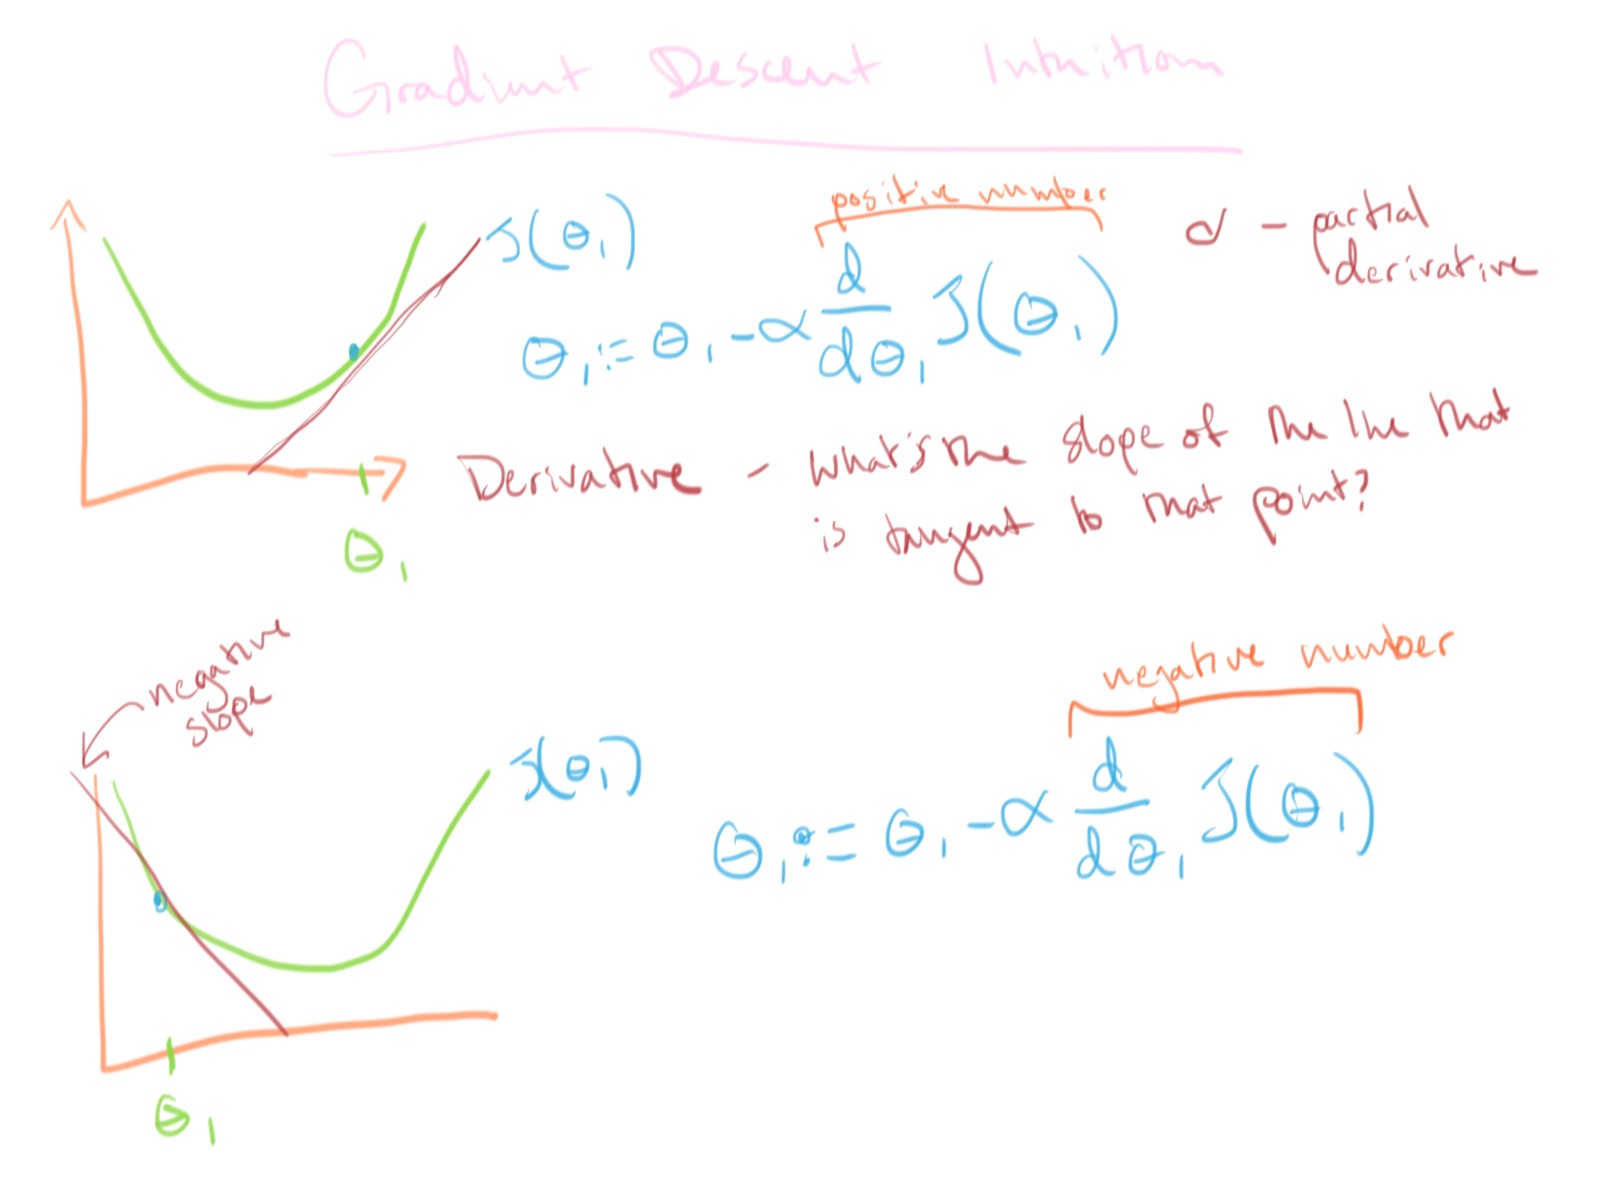 Gradient Descent Intuition
J(θ₁)
positive number
θ₁ := θ₁ - α d/dθ₁ J(θ₁)
∂ - partial
derivative
Derivative - what's the slope of the line that
is tangent to that point?
θ₁
negative
slope
J(θ₁)
negative number
θ₁ := θ₁ - α d/dθ₁ J(θ₁)
θ₁